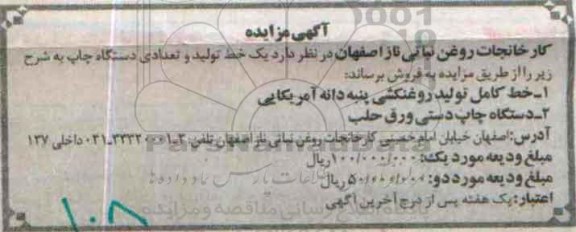 آگهی مزایده
کارخانجات روغن نباتی ناز اصفهان در نظر دارد یک خط تولید و تعدادی دستگاه چاپ به شرح
زیر را از طریق مزایده به فروش برساند:
۱-خط کامل تولید روغنکشی پنبه دانه آمریکایی
۲-دستگاه چاپ دستی ورق حلب
آدرس: اصفهان خیابان امام خمینی کارخانجات روغن نباتی ناز اصفهان تلفن: ۳-۳۳۳۲۰۰۰۱-۰۳۱ داخلی ۱۳۷
مبلغ ودیعه مورد یک: ۱۰۰/۰۰۰/۰۰۰ ریال
مبلغ ودیعه مورد دو: ریال
اعتبار: یک هفته پس از درج آخرین آگهی
۱۰۸
پایگاه اطلاع رسانی مناقصه و مزایده